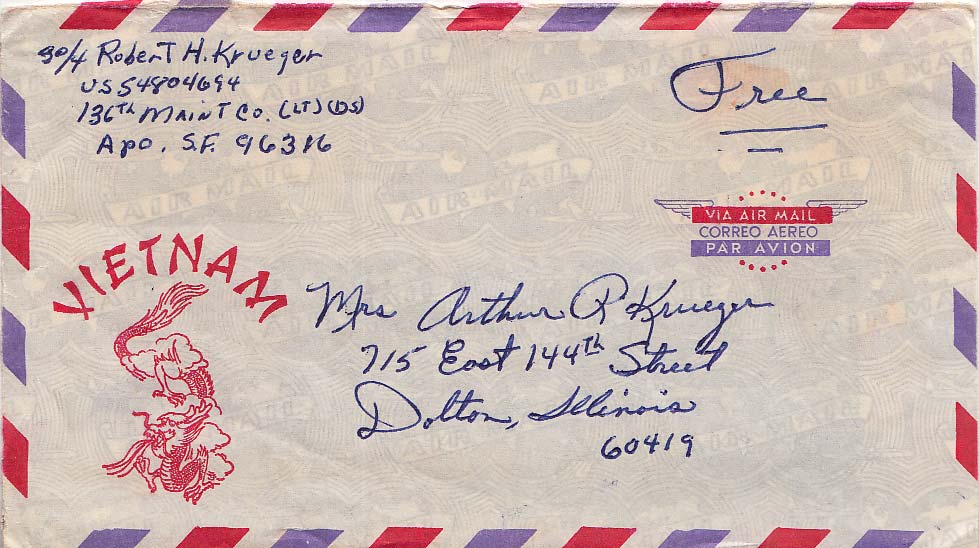 Sp/4 Robert H. Krueger
US 54804694
136th Maint Co. (LT)(DS)
Apo. S.F. 96316
Free
VIA AIR MAIL
CORREO AEREO
PAR AVION
VIETNAM
Mrs Arthur P Krueger
715 East 144th Street
Dolton, Illinois
60419
AIR MAIL
AIR MAIL
AIR MAIL